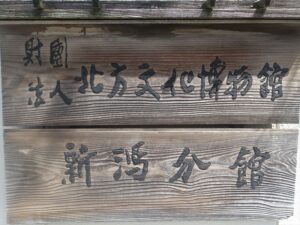 財團
法人北方文化博物館
新潟分館